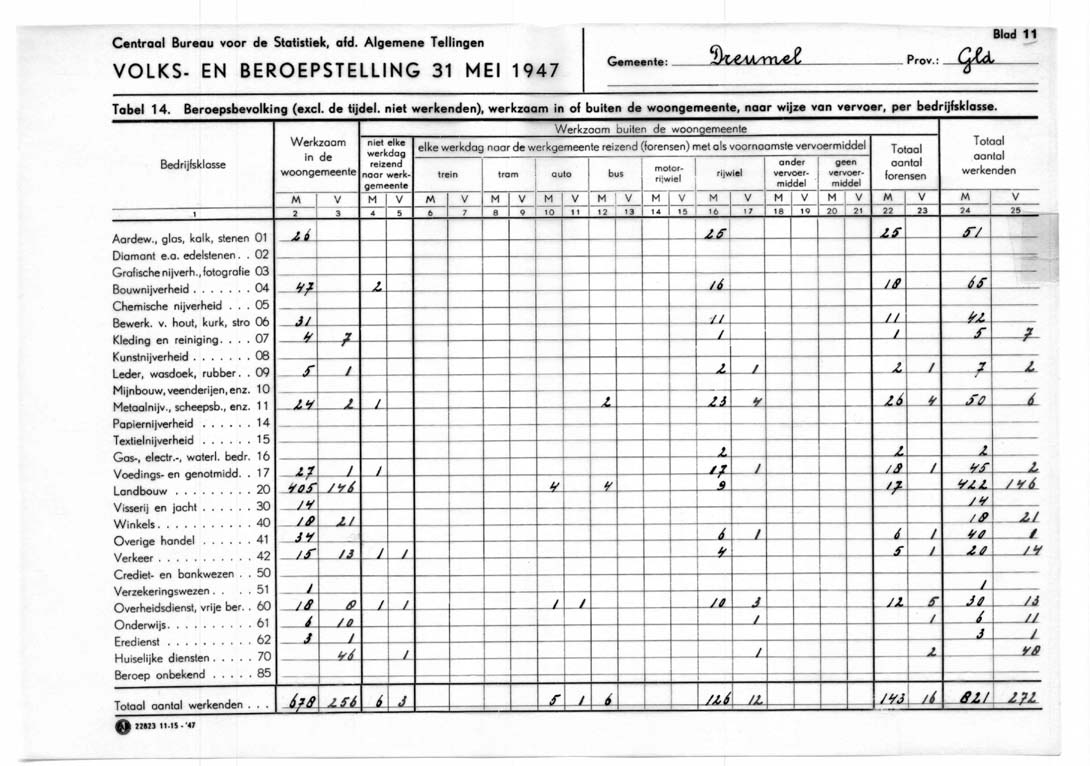 Blad 11
Centraal Bureau voor de Statistiek, afd. Algemene Tellingen
VOLKS- EN BEROEPSTELLING 31 MEI 1947
Gemeente: Dreumel Prov.: Gld
Tabel 14. Beroepsbevolking (excl. de tijdel. niet werkenden), werkzaam in of buiten de woongemeente, naar wijze van vervoer, per bedrijfsklasse.
Bedrijfsklasse
Werkzaam in de woongemeente
Werkzaam buiten de woongemeente
niet elke werkdag reizend naar werk-gemeente
elke werkdag naar de werkgemeente reizend (forensen) met als voornaamste vervoermiddel
trein tram auto bus motor-rijwiel rijwiel ander vervoer-middel geen vervoer-middel
Totaal aantal forensen
Totaal aantal werkenden
M V M V M V M V M V M V M V M V M V M V M V M V
1 2 3 4 5 6 7 8 9 10 11 12 13 14 15 16 17 18 19 20 21 22 23 24 25
Aardew., glas, kalk, stenen 01 26 25 25 51
Diamant e.a. edelstenen . . 02
Grafische nijverh., fotografie 03
Bouwnijverheid . . . . . . . 04 47 2 16 18 65
Chemische nijverheid . . . 05
Bewerk. v. hout, kurk, stro 06 31 11 11 42
Kleding en reiniging. . . . 07 4 7 1 1 5 7
Kunstnijverheid . . . . . . . 08
Leder, wasdoek, rubber. . 09 5 1 2 1 2 1 7 2
Mijnbouw, veenderijen, enz. 10
Metaalnijv., scheepsb., enz. 11 24 2 1 2 23 4 26 4 50 6
Papiernijverheid . . . . . . 14
Textielnijverheid . . . . . . 15
Gas-, electr.-, waterl. bedr. 16 2 2 2
Voedings- en genotmidd. . 17 27 1 1 17 1 18 1 45 2
Landbouw . . . . . . . . . 20 405 146 4 4 9 17 422 146
Visserij en jacht . . . . . . 30 14 14
Winkels . . . . . . . . . . . 40 18 21 18 21
Overige handel . . . . . . 41 34 6 1 6 1 40
Verkeer . . . . . . . . . . . 42 15 13 1 1 4 5 1 20 14
Crediet- en bankwezen . . 50
Verzekeringswezen . . . . 51 1 1
Overheidsdienst, vrije ber. . 60 18 8 1 1 1 1 10 3 12 5 30 13
Onderwijs. . . . . . . . . . 61 6 10 1 1 6 11
Eredienst . . . . . . . . . . 62 3 1 3 1
Huiselijke diensten . . . . . 70 46 1 1 2 48
Beroep onbekend . . . . . 85
Totaal aantal werkenden . . . 678 256 6 3 5 1 6 126 12 143 16 821 272
22823 11-15 - '47